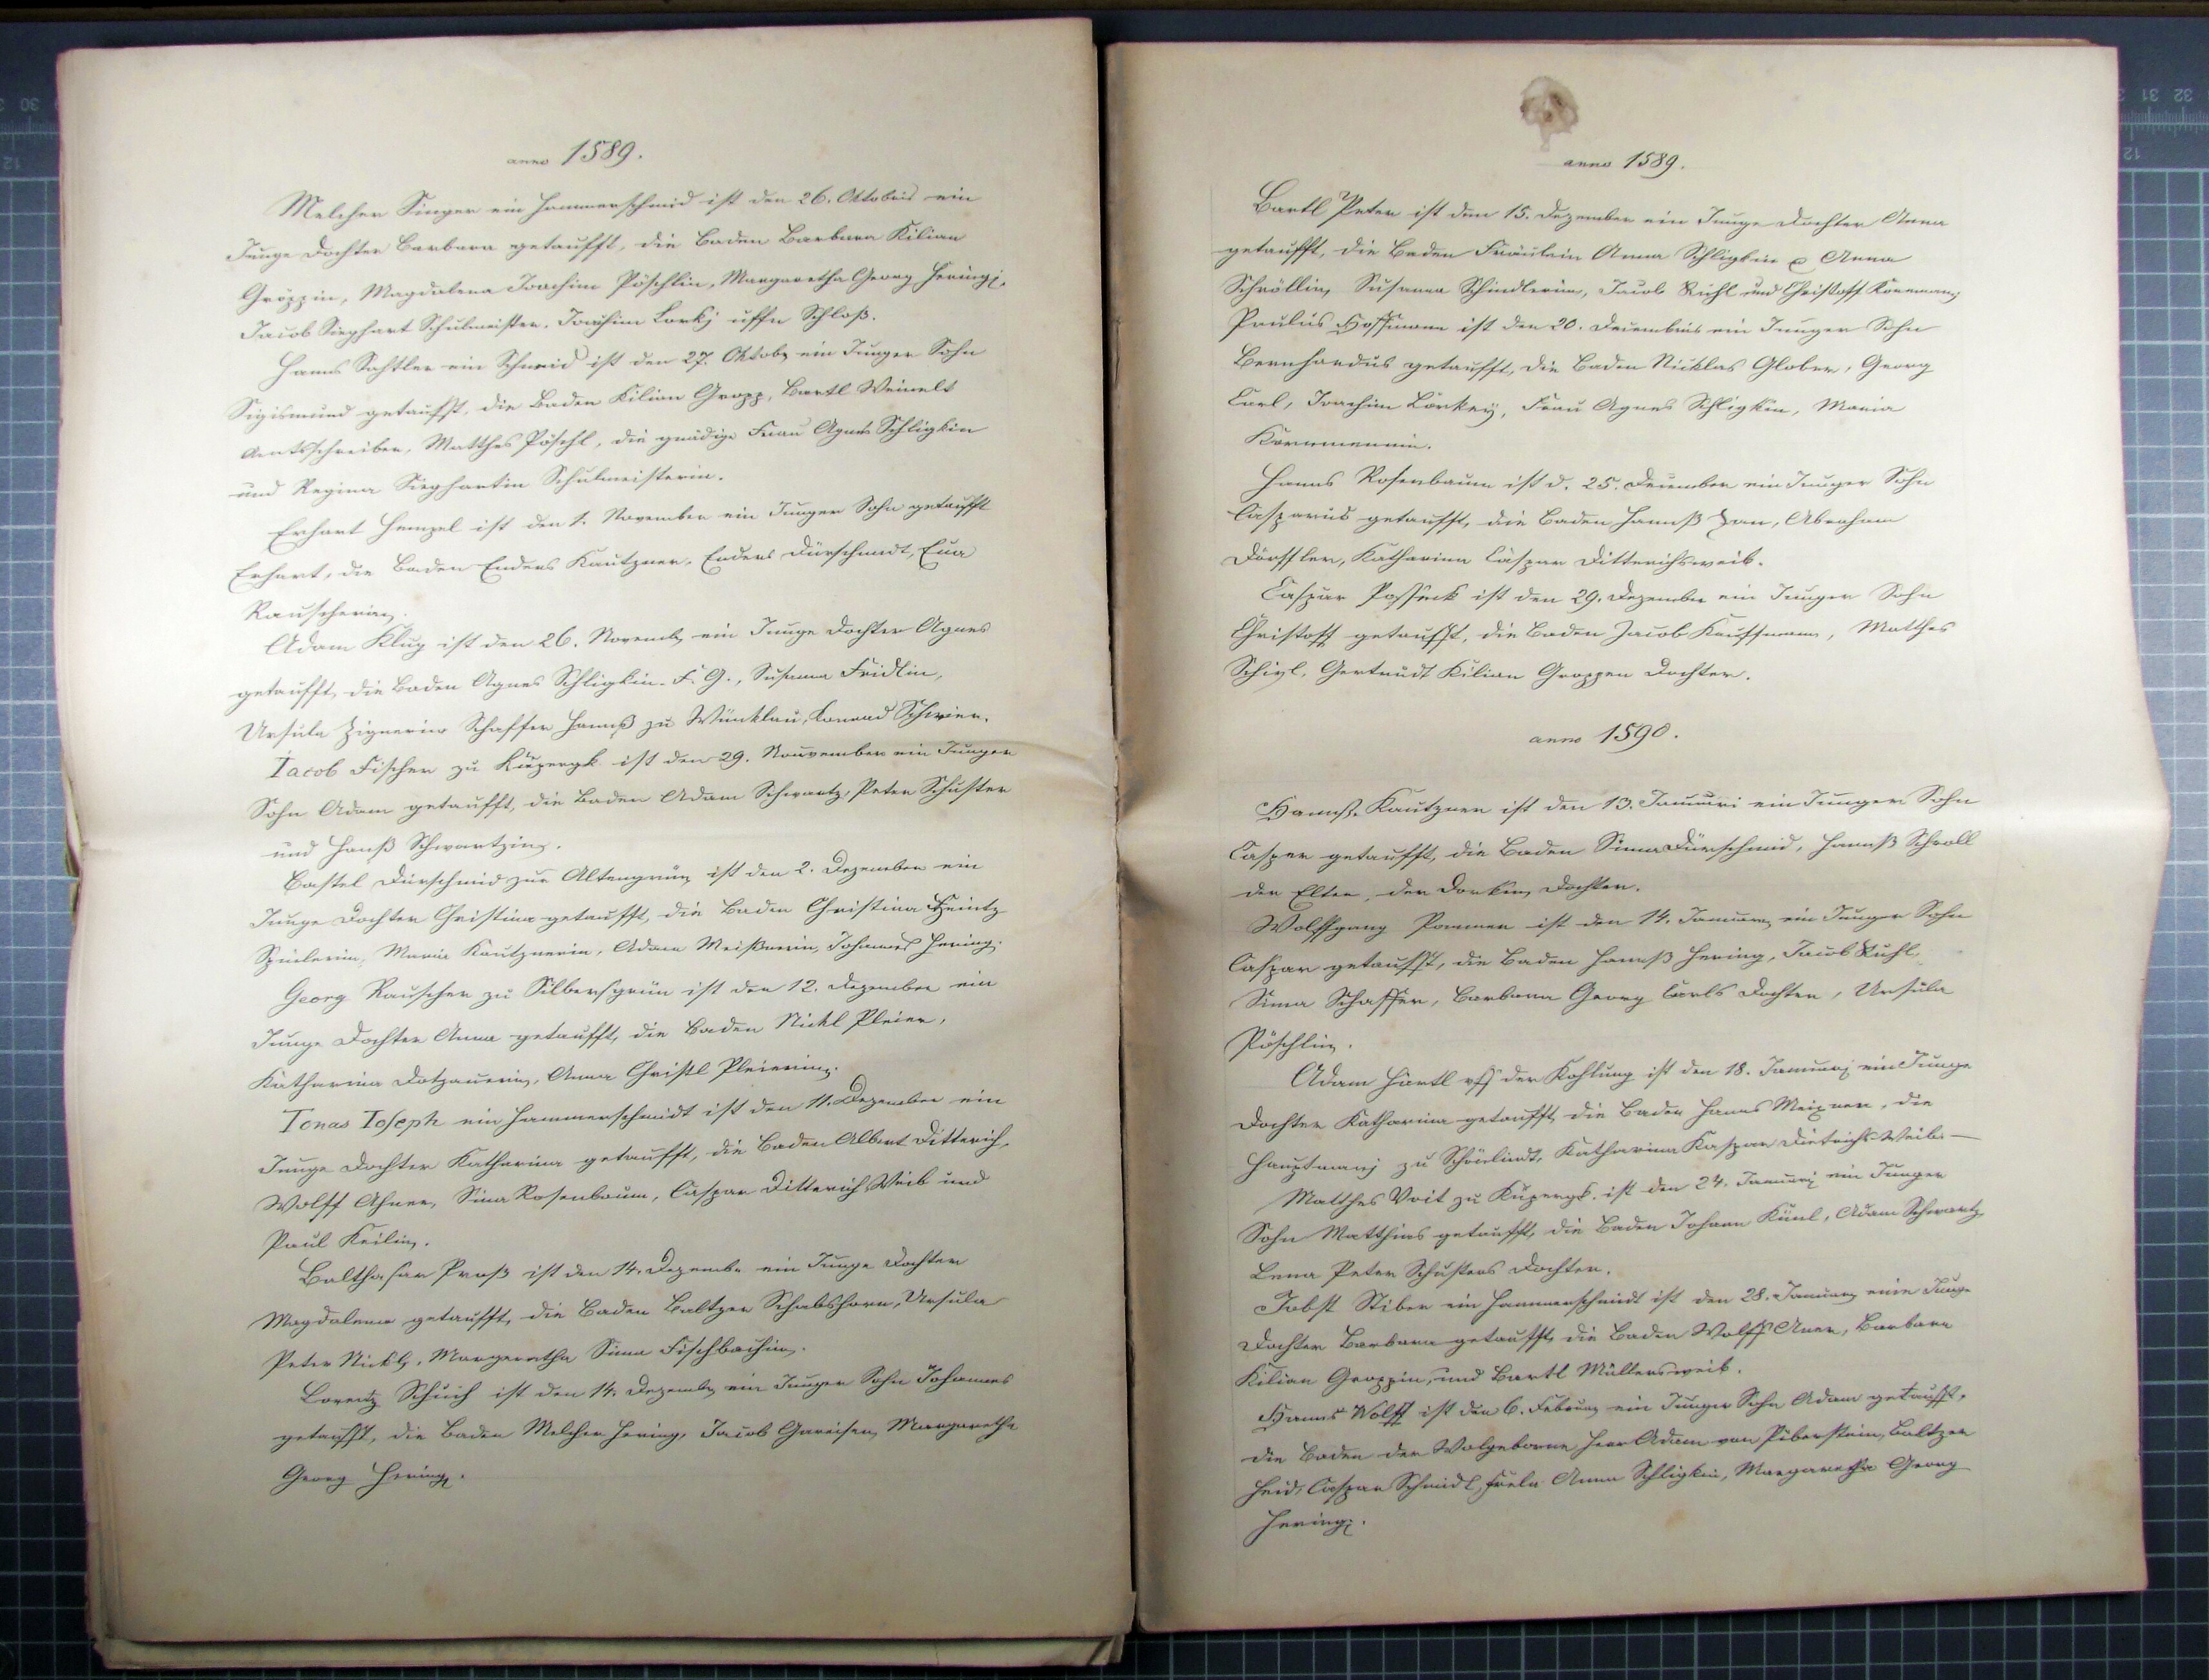 anno 1589.
Melcher Singer ein Hammerschmid ist den 26. Oktobris ein
Junge Dochter Barbara getaufft, die Baden Barbara Kilian
Gröppin, Magdalena Joachim Pöschlin, Margaretha Georg Hering,
Jacob Sieghart Schulmeister, Joachim Lorkj uffn Schloß.
Hanns Sachtler ein Schmid ist den 27. Oktobr ein Junger Sohn
Sigismund getaufft, die Baden Kilian Gropp, Bartl Weinelt
Amtsschreiber, Matthes Pöschl, die gnädige Frau Agnes Schligkin
und Regina Sieghartin Schulmeisterin.
Erhart Hempel ist den 1. November ein Junger Sohn getaufft
Erhart, die Baden Enders Kautzner, Enders Dürschmidt, Eua
Rauscherin.
Adam Klug ist den 26. Novemb. ein Junge Dochter Agnes
getaufft, die Baden Agnes Schligkin. F. G., Susanna Fridlin,
Ursula Schaffer Hannß zu Konrad
Iacob Fischer zu ist den 29. Nouvember ein Junger
Sohn Adam getaufft, die Baden Adam Schwartz, Peter Schuster
und Hanß Schwartzin.
Bastel Dürschmid zur Altengrün ist den 2. Dezember ein
Junge Dochter Christina getaufft, die Baden Christina Heintz
Maria Kautznerin, Adam Meißnerin, Johannes Hering.
Georg Rauscher zu Silbersgrün ist den 12. Dezember ein
Junge Dochter Anna getaufft, die Baden Nickl Pleier,
Katharina Dotzauerin, Anna Christl Pleierin.
Ionas Ioseph ein Hammerschmidt ist den 11. Dezember ein
Junge Dochter Katharina getaufft, die Baden Albert Ditterich,
Wolff Ahner, Sima Rosenbaum, Caspar Ditterich Weib und
Paul Keilin.
Balthasar Proß ist den 14. Dezembr ein Junge Dochter
Magdalena getaufft, die Baden Baltzer Schabshorn, Ursula
Peter Nickl, Margaretha Sima Fischbachin.
Lorentz Schuch ist den 14. Dezemb. ein Junger Sohn Johannes
getaufft, die Baden Melcher Hering, Jacob Gareisen, Margaretha
Georg Hering.
anno 1589.
Bartl Peter ist den 15. Dezember ein Junge Dochter Anna
getaufft, die Baden Fräulein Anna Schligkin Anna
Schröllin, Susanna Schindlerin, Jacob Kühl und Christoff Kornmann
Paulus Hoffmann ist den 20. Decembris ein Junger Sohn
Bernhardus getaufft, die Baden Nicklas Glober, Georg
Carl, Joachim Lörkey, Frau Agnes Schligkin, Maria
Kornmennin.
Hanns Rosenbaum ist d. 25. December ein Junger Sohn
Casparus getaufft, die Baden Hannß Abraham
Dörffler, Katharina Caspar Ditterichsweib.
Caspar Posseck ist den 29. Dezember ein Junger Sohn
Christoff getaufft, die Baden Jacob Kauffmann, Matthes
Gertrudt Kilian Groppen Dochter.
anno 1590.
Hannß Kautzner ist den 13. Januari ein Junger Sohn
Casper getaufft, die Baden Sima Dürschmid, Hannß Schroll
der Elter, der Dochter.
Wolffgang Pommer ist den 14. Januar ein Junger Sohn
Caspar getaufft, die Baden Hannß Hering, Jacob Kuhl,
Sima Schaffer, Barbara Georg Carls Dochter, Ursula
Pöschlin.
Adam Härtl uff der Kohlung ist den 18. Januarj ein Junge
Dochter Katharina getaufft, die Baden Hanns Meixner, die
Hauptmanj zu Schönlindt, Katharina Kaspar Dietrichs Weib. —
Matthes Voit zu ist den 24. Januarj ein Junger
Sohn Matthias getaufft, die Baden Johann Künl, Adam Schwartz
Lena Peter Schusters Dochter.
Jobst Stiber ein Hammerschmidt ist den 28. Januar eine Junge
Dochter Barbara getaufft, die Baden Wolff Aner, Barbara
Kilian Groppin, und Bartl Müllersweib.
Hanns Wolff ist den 6. Februar ein Junger Sohn Adam getaufft,
die Baden der Wolgeborne Herr Adam von Piberstein, Baltzer
Heid, Caspar Schmidl, Freln Anna Schligkin, Margaretha Georg
Hering.